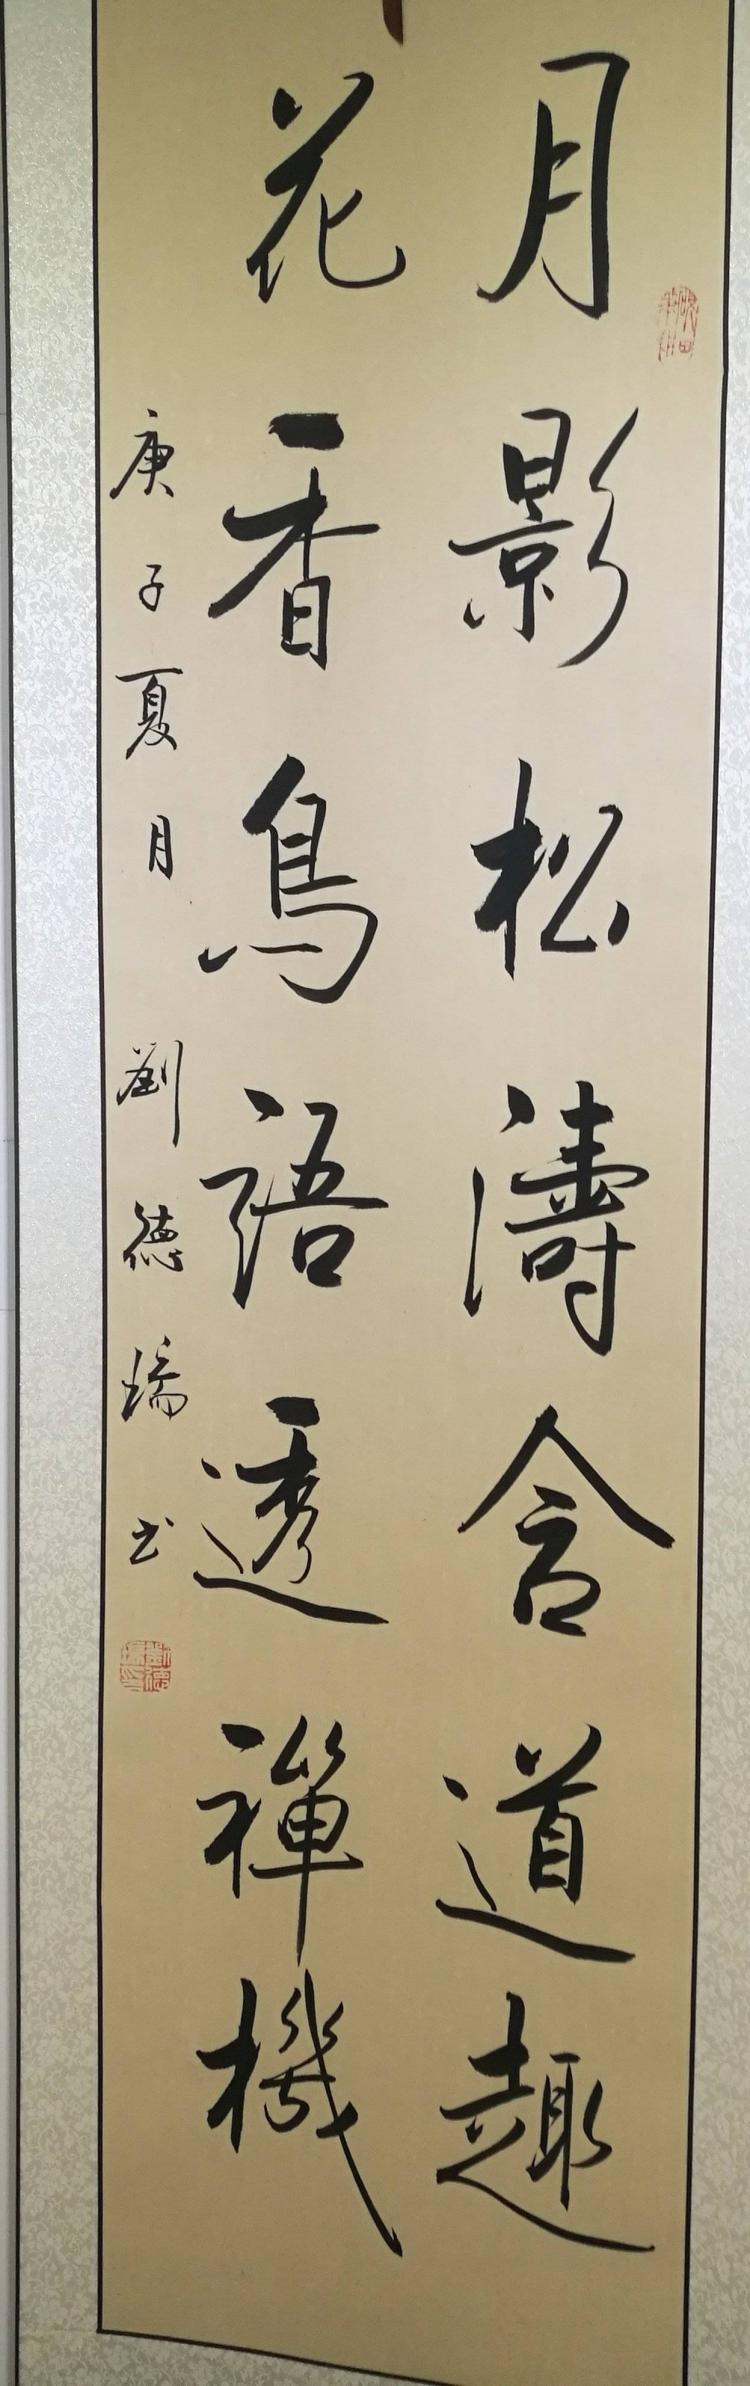 月影松濤含道趣
花香鳥語透禪機
庚子夏月 劉德瑞书
劉德瑞印